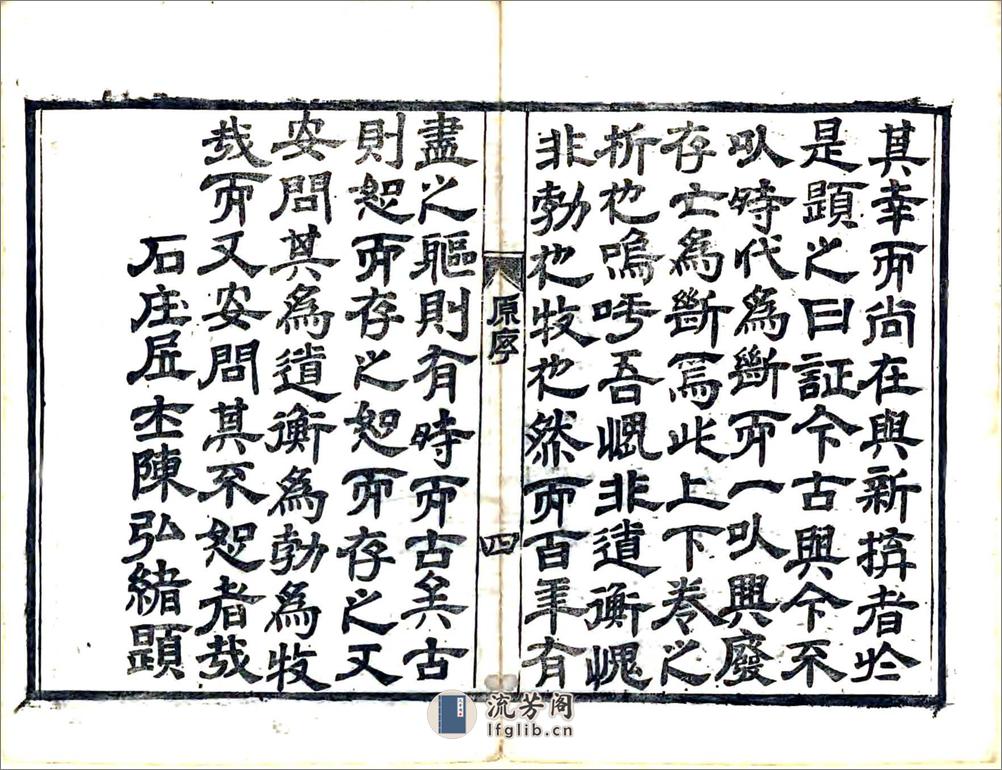 其幸而尚在與新摛者於
是題之曰証今古興今不
以時代為斷而一以興廢
存亡為斷焉此上下卷之
析也嗚呼吾嵦非道衡嵦
非勃也牧也然而百年有
原序
四
盡之軀則有時而古矣古
則恕而存之恕而存之又
安問其為道衡為勃為牧
哉而又安問其不恕者哉
石庄居士陳弘緒題
流芳阁
lfglib.cn